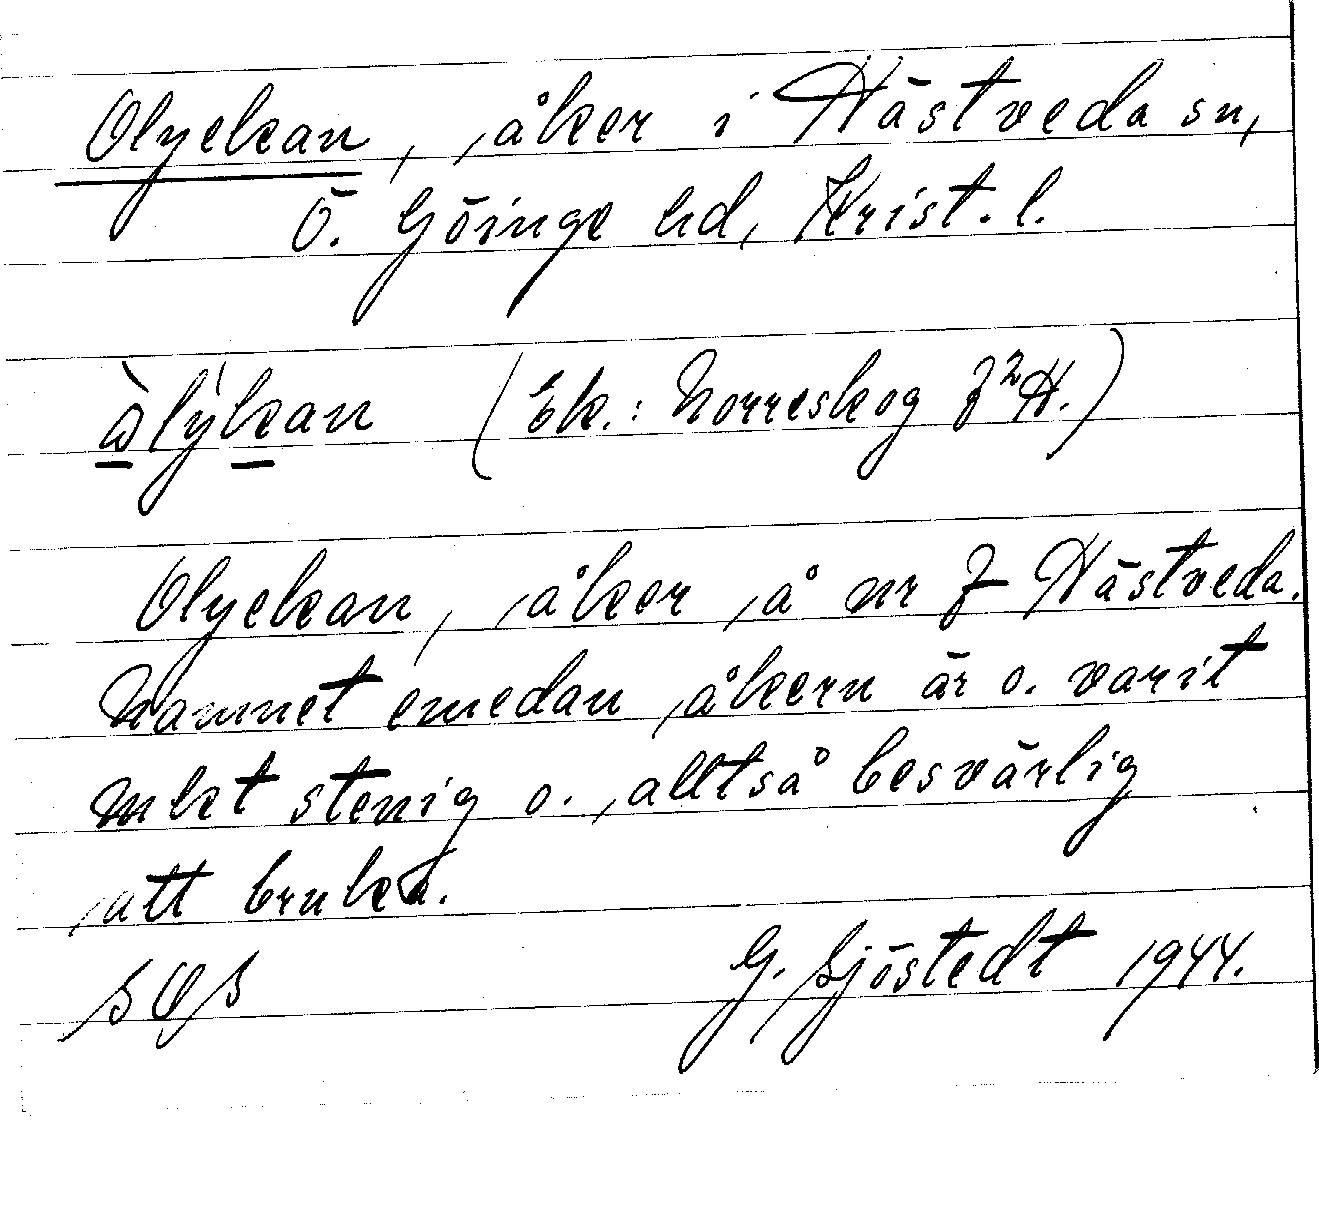 Olyckan, åker i Hästveda sn,
Ö. Göinge hd, Krist. l.
ẁlýkan (Ek.: Norreskog 7²H.)
Olyckan, åker å nr 7 Hästveda.
Namnet emedan åkern är o. varit
mkt stenig o. alltså besvärlig
att bruka.
G. Sjöstedt 1944.